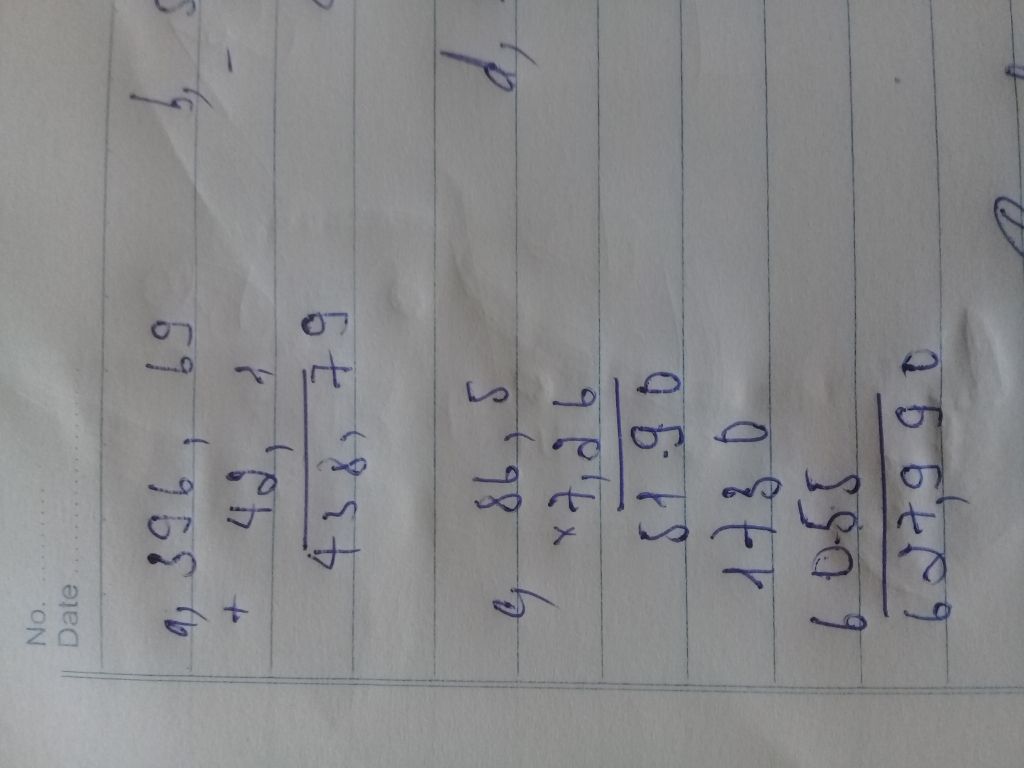 No.
Date
a, 396,69 b,
+ 42,1 -
438,79
c, 86,5 d,
×7,26
5190
1730
6055
627,990